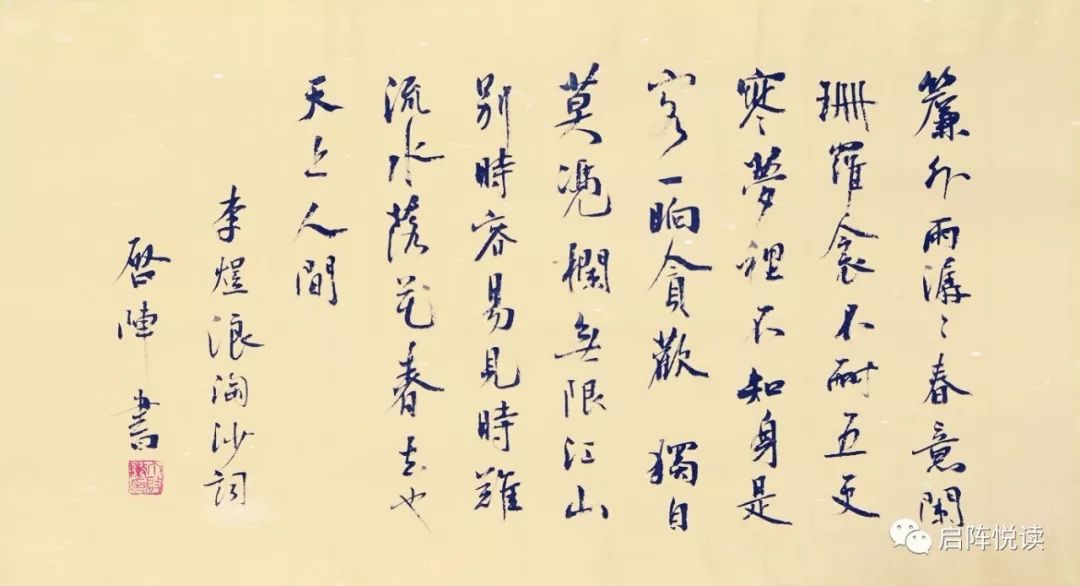 簾外雨潺〻春意闌
珊羅衾不耐五更
寒夢裡不知身是
客一晌貪歡 獨自
莫憑欄無限江山
別時容易見時難
流水落花春去也
天上人間
李煜浪淘沙詞
啓陣書
启阵悦读